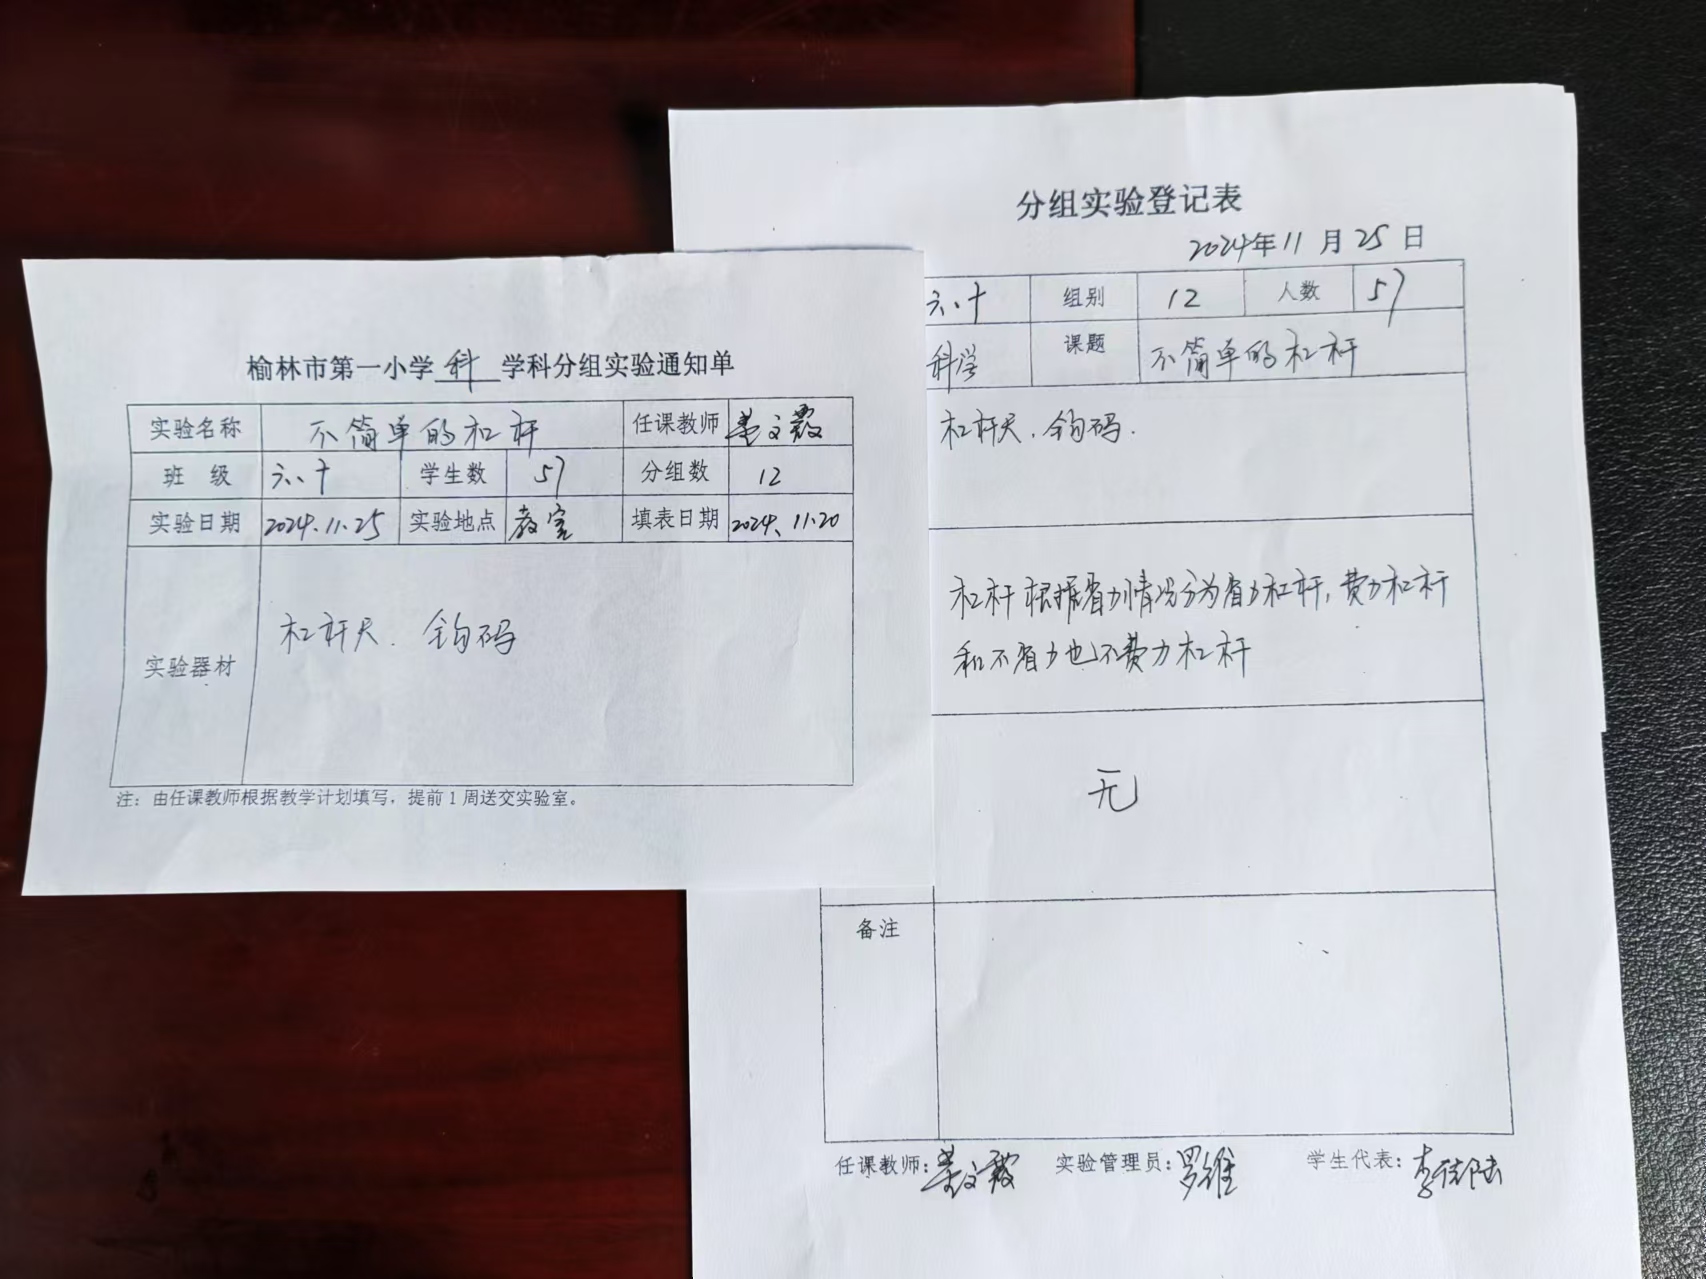 榆林市第一小学 科 学科分组实验通知单
实验名称 不简单的杠杆 任课教师 姜文霞
班 级 六、十 学生数 57 分组数 12
实验日期 2024.11.25 实验地点 教室 填表日期 2024.11.20
实验器材 杠杆尺. 钩码
注：由任课教师根据教学计划填写，提前1周送交实验室。
分组实验登记表
2024年11月25日
六、十 组别 12 人数 57
科学 课题 不简单的杠杆
杠杆尺. 钩码.
杠杆根据省力情况分为省力杠杆, 费力杠杆
和不省力也不费力杠杆
无
备注
任课教师: 姜文霞 实验管理员: 罗维 学生代表: 李